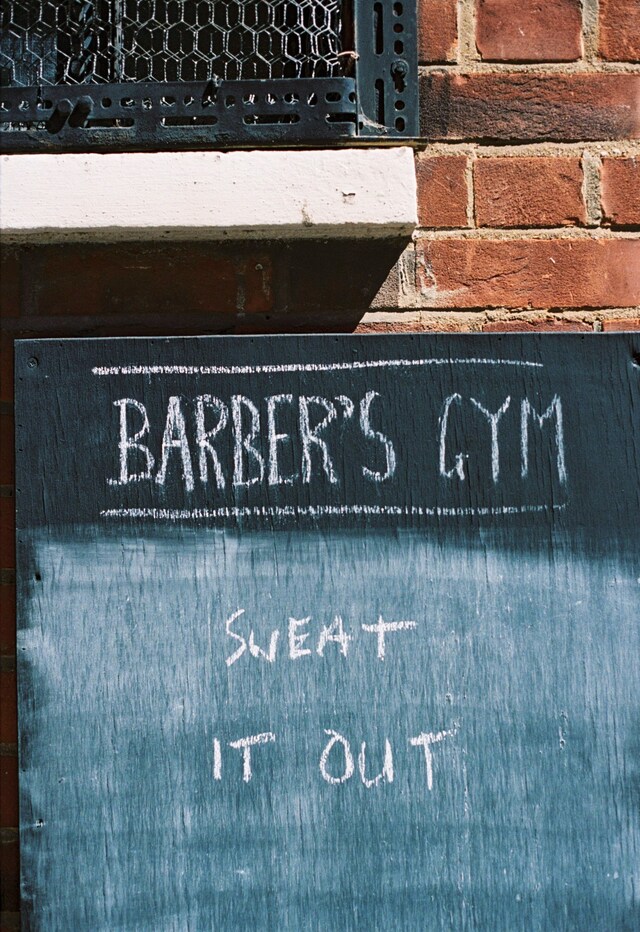 BARBER'S GYM
SWEAT
IT OUT